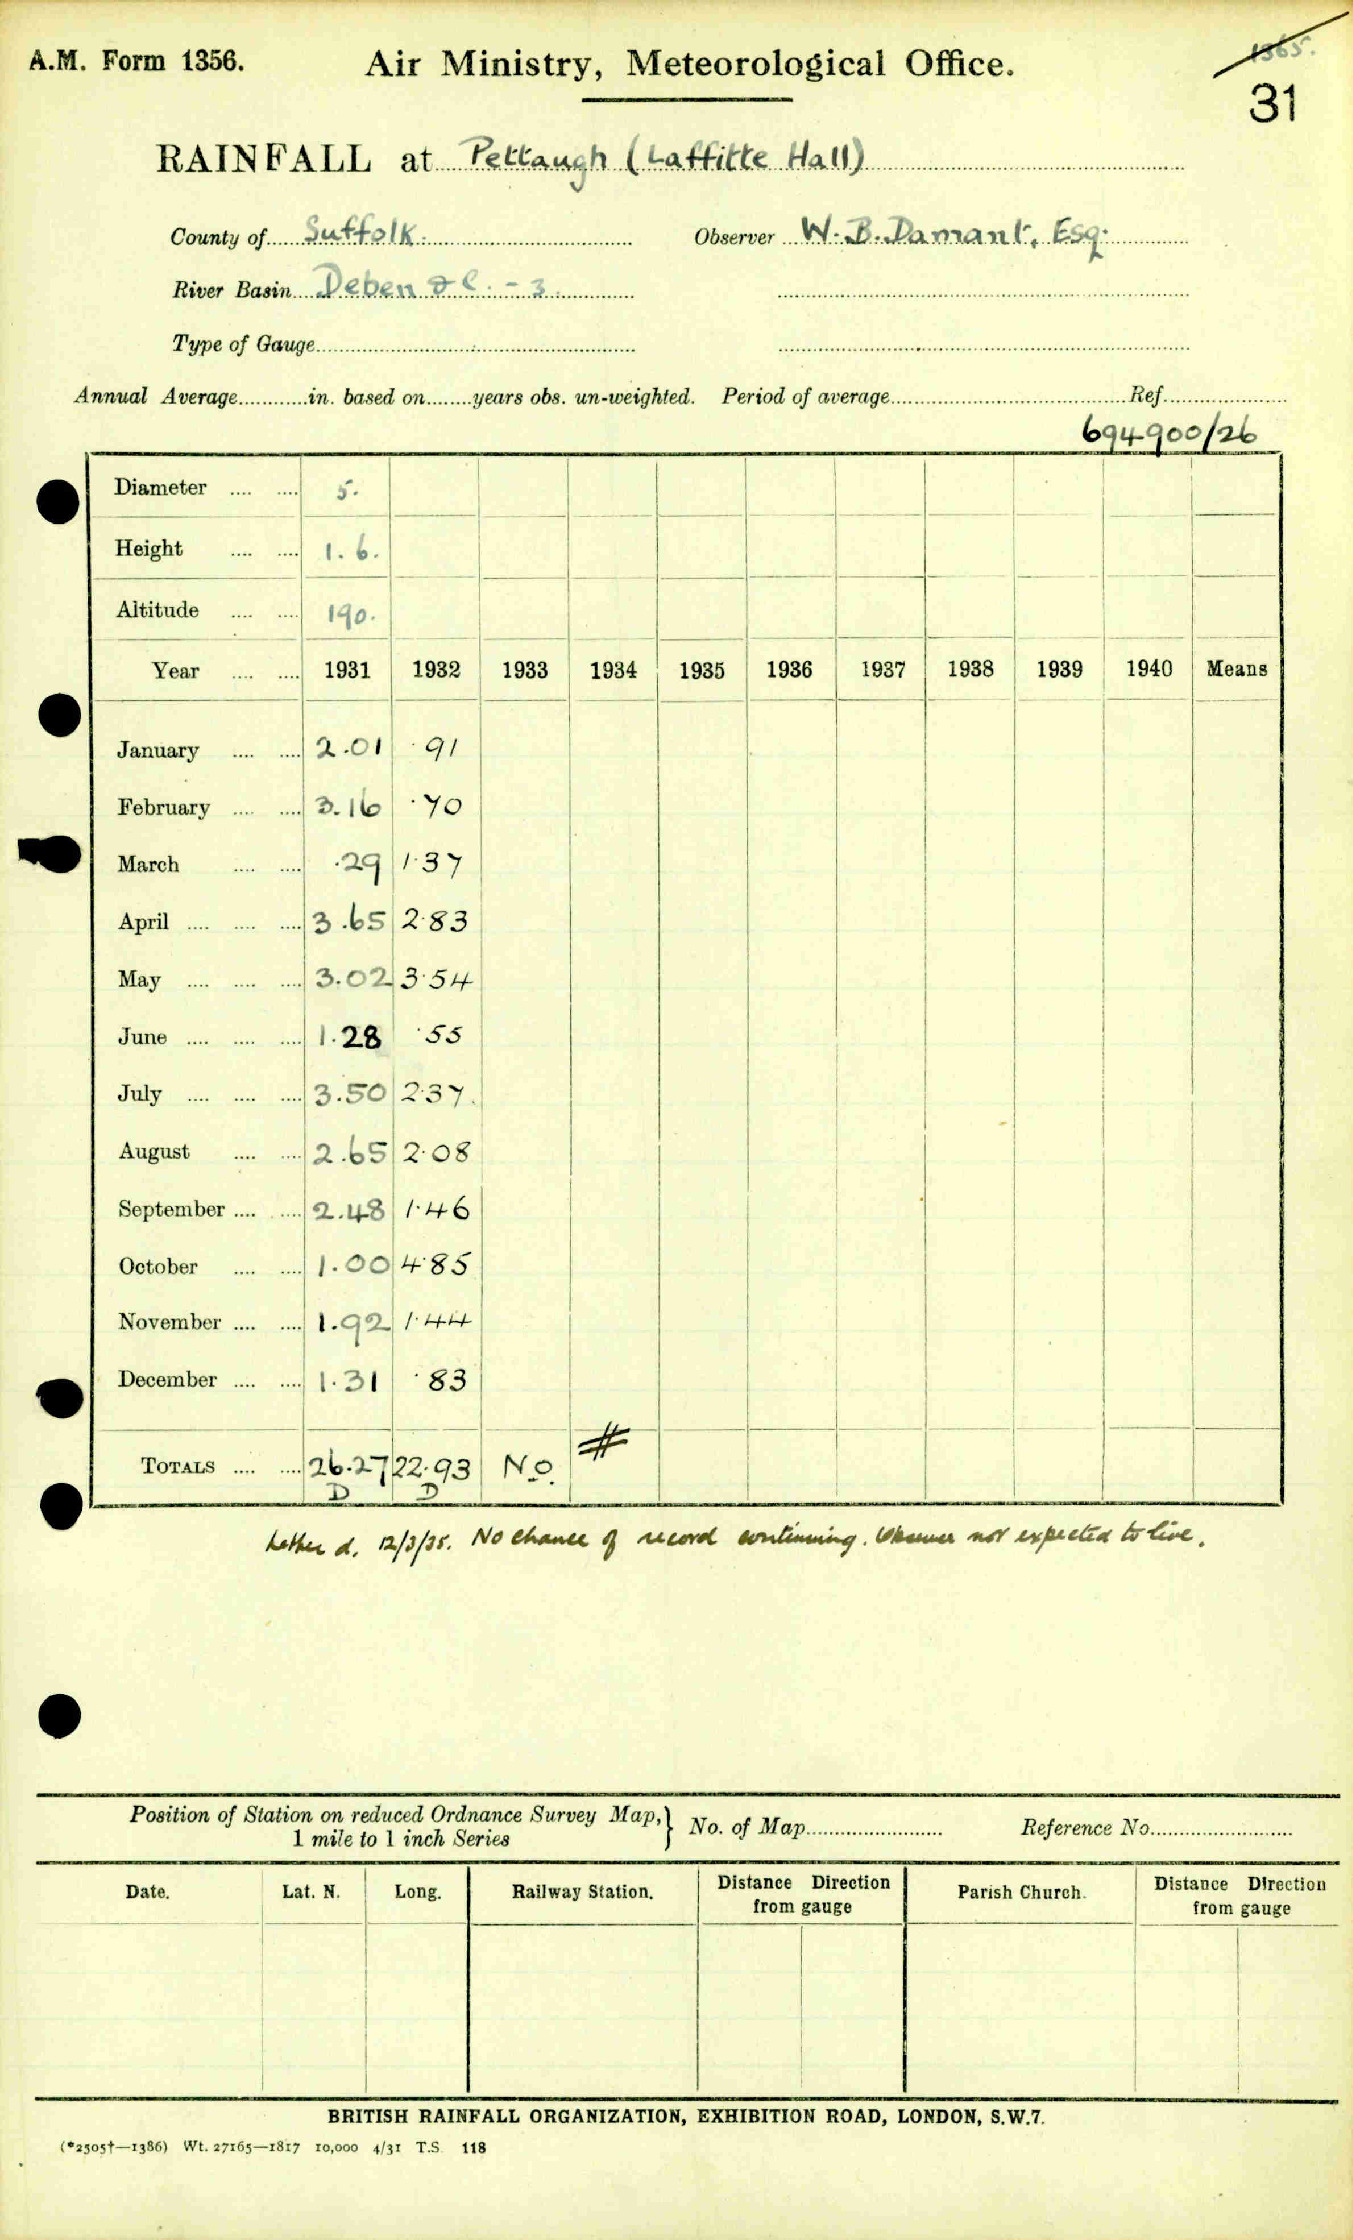 A.M. Form 1356.
Air Ministry, Meteorological Office.
1365.
31
RAINFALL at Pettaugh (Laffitte Hall)
County of Suffolk. Observer W. B. Damant, Esq.
River Basin Deben &c. - 3.
Type of Gauge
Annual Average............in. based on........years obs. un-weighted. Period of average.......... Ref..........
694900/26
Diameter .... .... 5.
Height .... .... 1. 6.
Altitude .... .... 190.
Year .... .... 1931 1932 1933 1934 1935 1936 1937 1938 1939 1940 Means
January .... .... 2.01 ·91
February .... .... 3.16 ·70
March .... .... ·29 1·37
April .... .... .... 3.65 2·83
May .... .... .... 3.02 3·54
June .... .... .... 1.28 ·55
July .... .... .... 3.50 2·37
August .... .... 2.65 2·08
September .... .... 2.48 1·46
October .... .... 1.00 4·85
November .... .... 1.92 1·44
December .... .... 1.31 ·83
TOTALS .... .... 26.27 22.93 No. #
D D
Letter d. 12/3/35. No chance of record continuing. Observer not expected to live.
Position of Station on reduced Ordnance Survey Map, } No. of Map.......... Reference No..........
1 mile to 1 inch Series
Date. Lat. N. Long. Railway Station. Distance Direction from gauge Parish Church. Distance Direction from gauge
BRITISH RAINFALL ORGANIZATION, EXHIBITION ROAD, LONDON, S.W.7.
(*2505†—1386) Wt. 27165—1817 10,000 4/31 T.S. 118